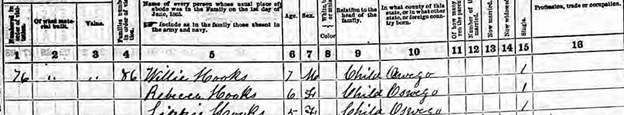 Of what material built.
Value.
Name of every person whose usual place of abode was in the Family on the 1st day of June, 1865.
Include as in the family those absent in the army and navy.
Age.
Sex.
Color
Relation to the head of the family.
In what county of this state, or in what other state, or foreign country born.
Now married.
Now widowed.
Single.
Profession, trade or occupation.
1 2 3 4 5 6 7 8 9 10 11 12 13 14 15 16
76 " " 86 Willie Hooks 7 M Child Oswego 1
Rebecca Hooks 6 F Child Oswego 1
Hooks 5 F Child Oswego 1